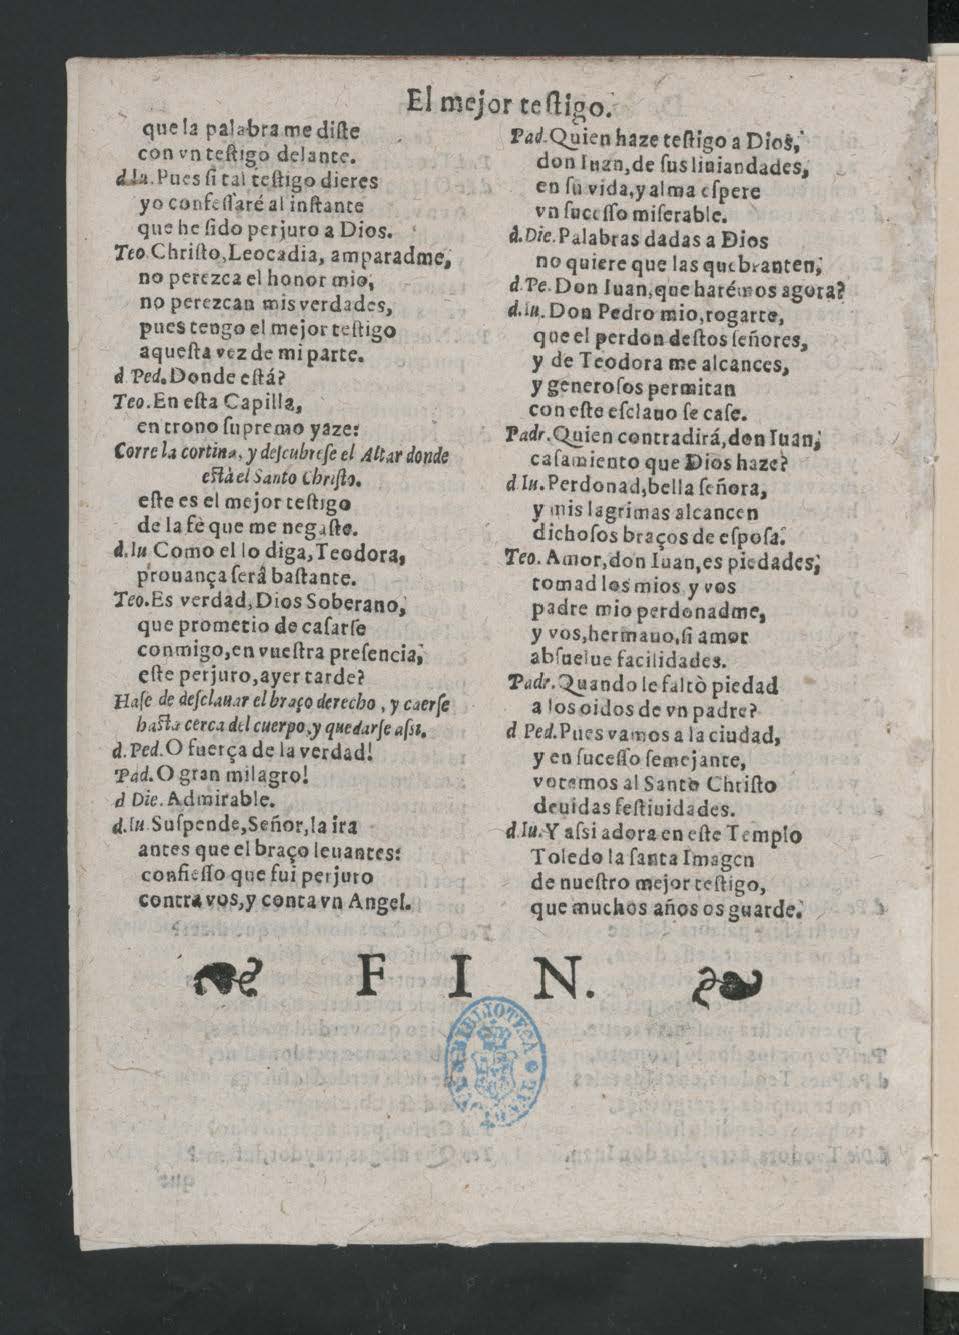 El mejor testigo.
que la palabra me diste
con vn testigo delante.
d Iu. Pues si tal testigo dieres
yo confessaré al instante
que he sido perjuro a Dios.
Teo Christo, Leocadia, amparadme,
no perezca el honor mio,
no perezcan mis verdades,
pues tengo el mejor testigo
aquesta vez de mi parte.
d Ped. Donde está?
Teo. En esta Capilla,
en trono supremo yaze:
Corre la cortina, y descubrese el Altar donde
està el Santo Christo.
este es el mejor testigo
de la fè que me negaste.
d. Iu Como el lo diga, Teodora,
prouança serâ bastante.
Teo. Es verdad, Dios Soberano,
que prometio de casarse
conmigo, en vuestra presencia,
este perjuro, ayer tarde?
Hase de desclauar el braço derecho, y caerse
hasta cerca del cuerpo, y quedarse assi.
d. Ped. O fuerça de la verdad!
Pad. O gran milagro!
d Die. Admirable.
d. Iu. Suspende, Señor, la ira
antes que el braço leuantes:
confiesso que fui perjuro
contra vos, y conta vn Angel.
Pad. Quien haze testigo a Dios,
don Iuan, de sus liuiandades,
en su vida, y alma espere
vn sucesso miserable.
d. Die. Palabras dadas a Dios
no quiere que las quebranten,
d. Pe. Don Iuan, que harémos agora?
d. Iu. Don Pedro mio, rogarte,
que el perdon destos señores,
y de Teodora me alcances,
y generosos permitan
con este esclauo se case.
Padr. Quien contradirá, don Iuan,
casamiento que Dios haze?
d Iu. Perdonad, bella señora,
y mis lagrimas alcancen
dichosos braços de esposa.
Teo. Amor, don Iuan, es piedades,
tomad los mios y vos
padre mio perdonadme,
y vos, hermano, si amor
absuelue facilidades.
Padr. Quando le faltò piedad
a los oidos de vn padre?
d Ped. Pues vamos a la ciudad,
y en sucesso semejante,
votemos al Santo Christo
deuidas festiuidades.
d. Iu. Y assi adora en este Templo
Toledo la santa Imagen
de nuestro mejor testigo,
que muchos años os guarde.
F I N.
BIBLIOTECA